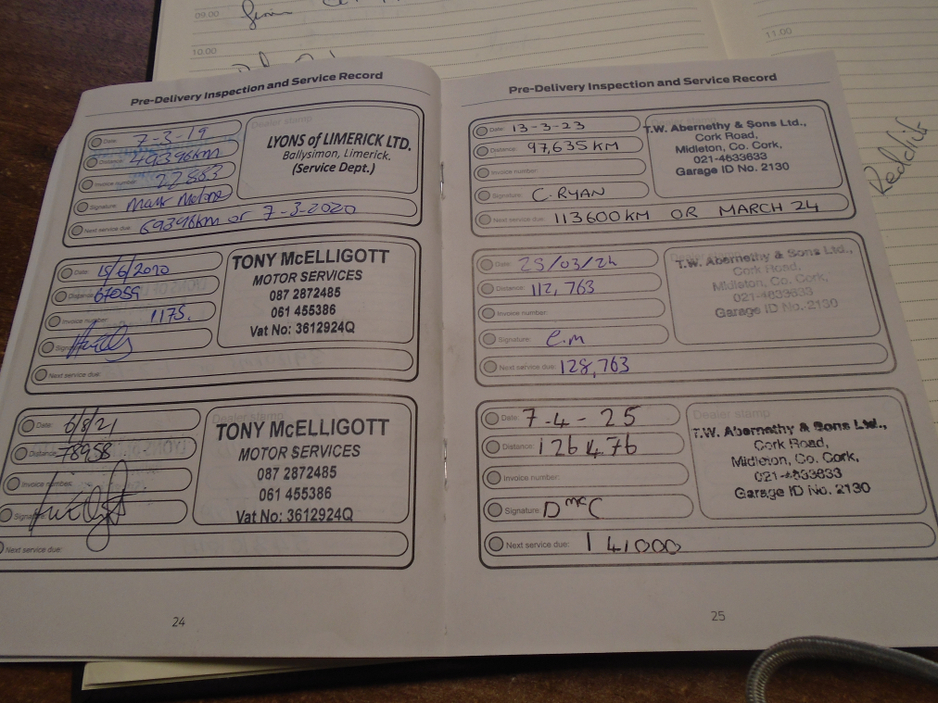 09.00
10.00
11.00
Pre-Delivery Inspection and Service Record
Date: 7-3-19
Distance: 49396km
Invoice number: 22863
Signature:
Next service due: 69396km or 7-3-2020
Dealer stamp
LYONS of LIMERICK LTD.
Ballysimon, Limerick.
(Service Dept.)
Date: 15/6/2020
Distance: 67059
Invoice number: 1175.
Signature:
Next service due:
TONY McELLIGOTT
MOTOR SERVICES
087 2872485
061 455386
Vat No: 3612924Q
Date: 6/8/21
Distance: 78958
Invoice number:
Signature:
Next service due:
Dealer stamp
TONY McELLIGOTT
MOTOR SERVICES
087 2872485
061 455386
Vat No: 3612924Q
24
Pre-Delivery Inspection and Service Record
Date: 13-3-23
Distance: 97,635 KM
Invoice number:
Signature: C. RYAN
Next service due: 113600 KM OR MARCH 24
T.W. Abernethy & Sons Ltd.,
Cork Road,
Midleton, Co. Cork,
021-4633633
Garage ID No. 2130
Date: 25/03/24
Distance: 112,763
Invoice number:
Signature: C.m
Next service due: 128,763
T.W. Abernethy & Sons Ltd.,
Cork Road,
Midleton, Co. Cork,
021-4633633
Garage ID No. 2130
Date: 7-4-25
Distance: 126476
Invoice number:
Signature: DMcC
Next service due: 141000
Dealer stamp
T.W. Abernethy & Sons Ltd.,
Cork Road,
Midleton, Co. Cork,
021-4633633
Garage ID No. 2130
25